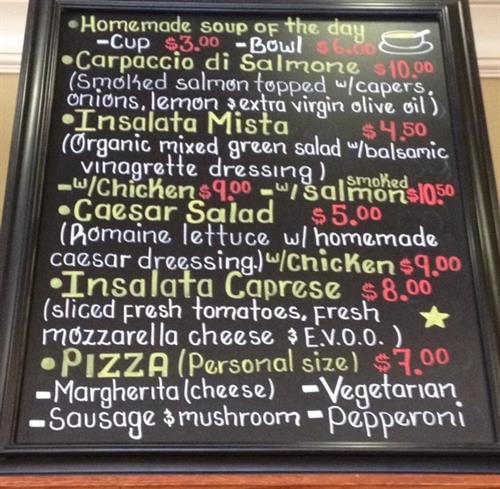 •Homemade soup of the day
-Cup $3.00 -Bowl $6.00
•Carpaccio di Salmone $10.00
(Smoked salmon topped w/capers,
onions, lemon & extra virgin olive oil)
•Insalata Mista $4.50
(Organic mixed green salad w/balsamic
vinagrette dressing)
-w/Chicken $9.00 -w/ smoked salmon $10.50
•Caesar Salad $5.00
(Romaine lettuce w/ homemade
caesar dreessing.) w/Chicken $9.00
•Insalata Caprese $8.00
(sliced fresh tomatoes, fresh
mozzarella cheese & E.V.O.O. )
•PIZZA (Personal size) $7.00
-Margherita (cheese) -Vegetarian
-Sausage & mushroom -Pepperoni